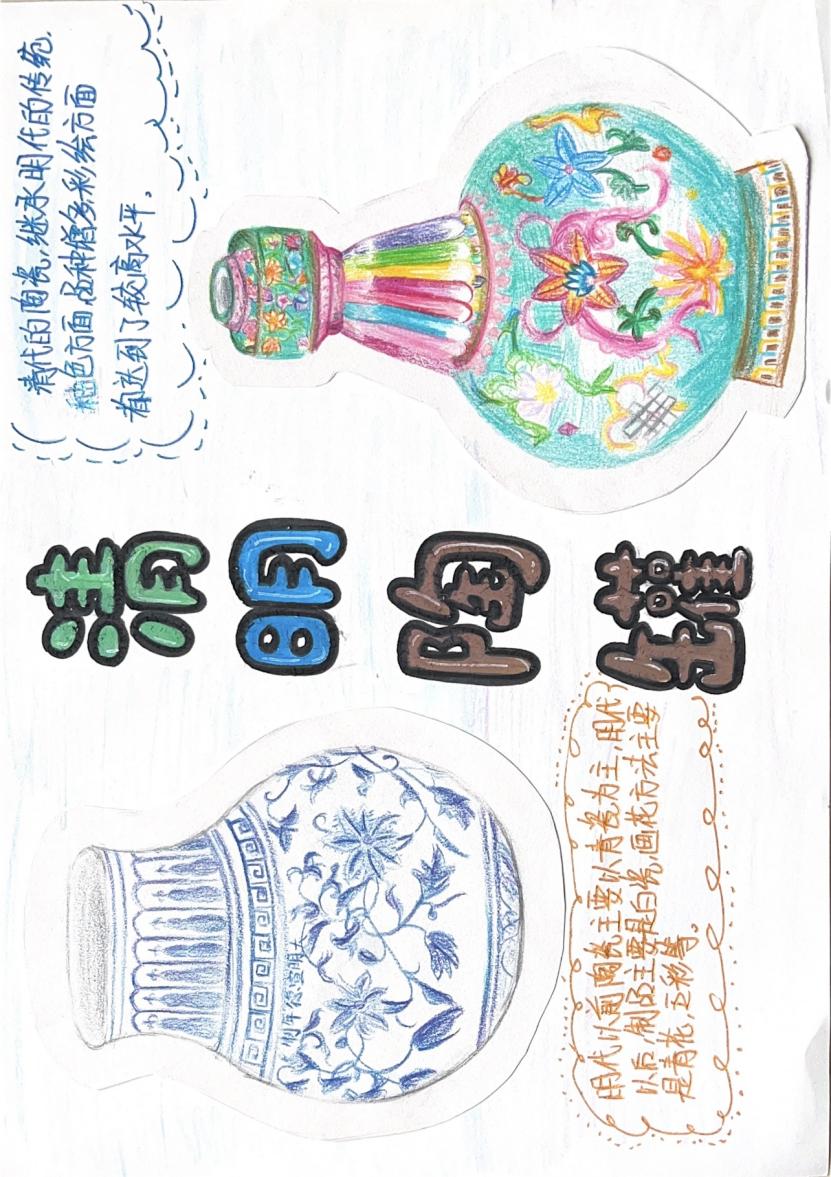 清
明
陶
罐
大明宣德年制
清代的陶瓷,继承明代的传统,
釉色方面,品种多,彩绘方面
有达到了较高水平。
明代以前陶瓷主要以青瓷为主,明代
以后,制品主要是白瓷,画花方法主要
是青花,五彩等。